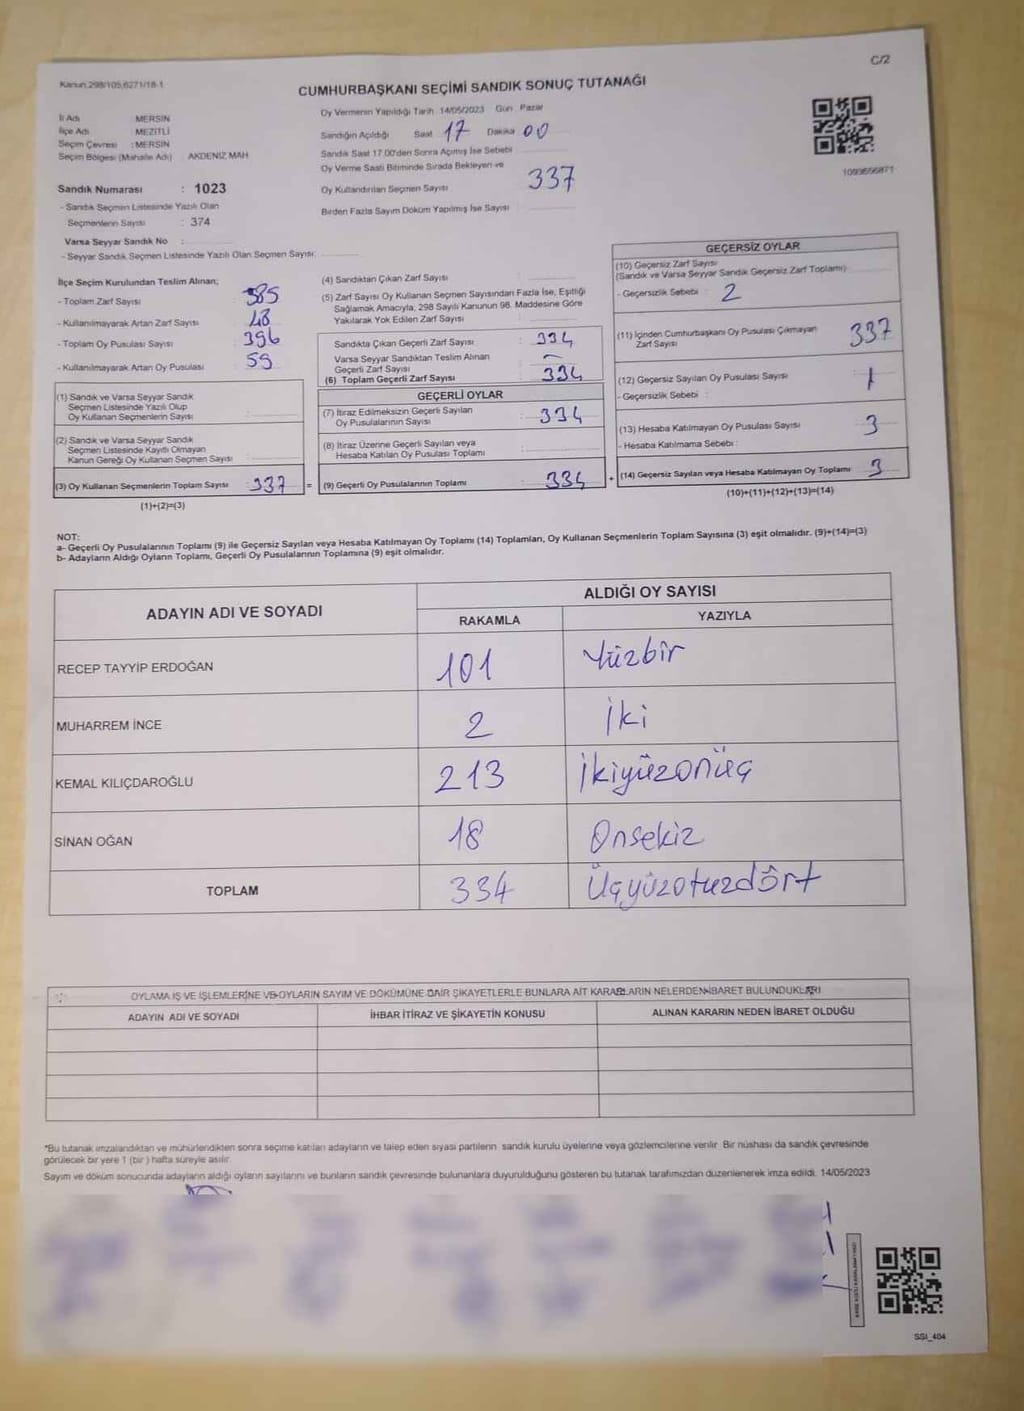 C/2
Kanun:298/105,6271/18-1
CUMHURBAŞKANI SEÇİMİ SANDIK SONUÇ TUTANAĞI
İl Adı MERSİN
İlçe Adı MEZİTLİ
Seçim Çevresi : MERSİN
Seçim Bölgesi (Mahalle Adı) AKDENİZ MAH
Sandık Numarası : 1023
- Sandık Seçmen Listesinde Yazılı Olan
Seçmenlerin Sayısı : 374
Varsa Seyyar Sandık No :
- Seyyar Sandık Seçmen Listesinde Yazılı Olan Seçmen Sayısı:
Oy Vermenin Yapıldığı Tarih 14/05/2023 Gün Pazar
Sandığın Açıldığı Saat 17 Dakika 00
Sandık Saat 17.00'den Sonra Açılmış İse Sebebi
Oy Verme Saati Bitiminde Sırada Bekleyen ve
Oy Kullandırılan Seçmen Sayısı 337
Birden Fazla Sayım Döküm Yapılmış İse Sayısı :
İlçe Seçim Kurulundan Teslim Alınan;
- Toplam Zarf Sayısı 385
- Kullanılmayarak Artan Zarf Sayısı 48
- Toplam Oy Pusulası Sayısı : 396
- Kullanılmayarak Artan Oy Pusulası 59
(1) Sandık ve Varsa Seyyar Sandık
Seçmen Listesinde Yazılı Olup
Oy Kullanan Seçmenlerin Sayısı
(2) Sandık ve Varsa Seyyar Sandık
Seçmen Listesinde Kayıtlı Olmayan
Kanun Gereği Oy Kullanan Seçmen Sayısı
(3) Oy Kullanan Seçmenlerin Toplam Sayısı : 337 =
(1)+(2)=(3)
(4) Sandıktan Çıkan Zarf Sayısı :
(5) Zarf Sayısı Oy Kullanan Seçmen Sayısından Fazla İse, Eşitliği
Sağlamak Amacıyla, 298 Sayılı Kanunun 98. Maddesine Göre
Yakılarak Yok Edilen Zarf Sayısı :
Sandıkta Çıkan Geçerli Zarf Sayısı : 334
Varsa Seyyar Sandıktan Teslim Alınan
Geçerli Zarf Sayısı
(6) Toplam Geçerli Zarf Sayısı 334
GEÇERLİ OYLAR
(7) İtiraz Edilmeksizin Geçerli Sayılan
Oy Pusulalarının Sayısı : 334
(8) İtiraz Üzerine Geçerli Sayılan veya
Hesaba Katılan Oy Pusulası Toplamı :
(9) Geçerli Oy Pusulalarının Toplamı : 334 +
GEÇERSİZ OYLAR
(10) Geçersiz Zarf Sayısı
(Sandık ve Varsa Seyyar Sandık Geçersiz Zarf Toplamı)
- Geçersizlik Sebebi : 2
(11) İçinden Cumhurbaşkanı Oy Pusulası Çıkmayan
Zarf Sayısı 337
(12) Geçersiz Sayılan Oy Pusulası Sayısı 1
- Geçersizlik Sebebi :
(13) Hesaba Katılmayan Oy Pusulası Sayısı 3
- Hesaba Katılmama Sebebi :
(14) Geçersiz Sayılan veya Hesaba Katılmayan Oy Toplamı 3
(10)+(11)+(12)+(13)=(14)
NOT:
a- Geçerli Oy Pusulalarının Toplamı (9) ile Geçersiz Sayılan veya Hesaba Katılmayan Oy Toplamı (14) Toplamları, Oy Kullanan Seçmenlerin Toplam Sayısına (3) eşit olmalıdır. (9)+(14)=(3)
b- Adayların Aldığı Oyların Toplamı, Geçerli Oy Pusulalarının Toplamına (9) eşit olmalıdır.
ADAYIN ADI VE SOYADI
ALDIĞI OY SAYISI
RAKAMLA YAZIYLA
RECEP TAYYİP ERDOĞAN 101 Yüzbir
MUHARREM İNCE 2 İki
KEMAL KILIÇDAROĞLU 213 İkiyüzonüç
SİNAN OĞAN 18 Onsekiz
TOPLAM 334 Üçyüzotuzdört
OYLAMA İŞ VE İŞLEMLERİNE VE OYLARIN SAYIM VE DÖKÜMÜNE DAİR ŞİKAYETLERLE BUNLARA AİT KARARLARIN NELERDEN İBARET BULUNDUKLARI
ADAYIN ADI VE SOYADI İHBAR İTİRAZ VE ŞİKAYETİN KONUSU ALINAN KARARIN NEDEN İBARET OLDUĞU
*Bu tutanak imzalandıktan ve mühürlendikten sonra seçime katılan adayların ve talep eden siyasi partilerin sandık kurulu üyelerine veya gözlemcilerine verilir. Bir nüshası da sandık çevresinde
görülecek bir yere 1 (bir) hafta süreyle asılır.
Sayım ve döküm sonucunda adayların aldığı oyların sayılarını ve bunların sandık çevresinde bulunanlara duyurulduğunu gösteren bu tutanak tarafımızdan düzenlenerek imza edildi. 14/05/2023
SSI_404